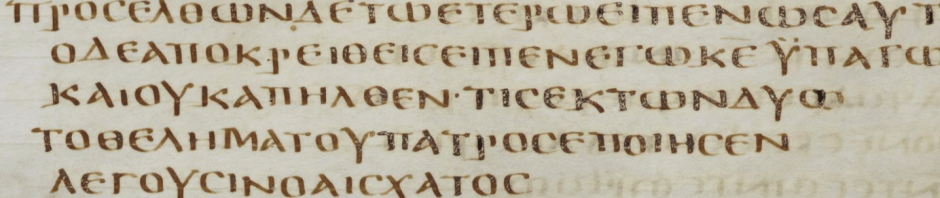 ΠΡΟCΕΛΘΩΝΔΕΤΩΕΤΕΡΩΕΙΠΕΝΩCΑΥΤ
ΟΔΕΑΠΟΚΡΕΙΘΕΙCΕΙΠΕΝΕΓΩΚΕ ΫΠΑΓΩ
ΚΑΙΟΥΚΑΠΗΛΘΕΝ·ΤΙCΕΚΤΩΝΔΥΟ
ΤΟΘΕΛΗΜΑΤΟΥΠΑΤΡΟCΕΠΟΙΗCΕΝ
ΛΕΓΟΥCΙΝΟΑΙCΧΑΤΟC